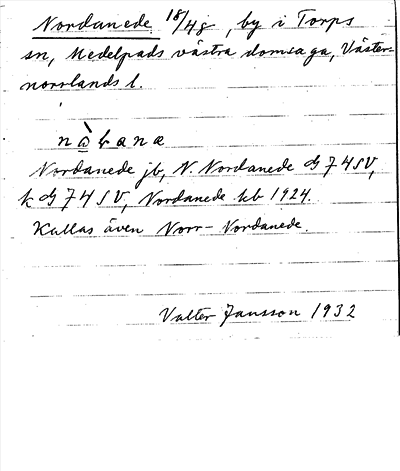 Nordanede 18/48, by i Torps
sn, Medelpads västra domsaga, Väster-
norrlands l.
Nordanede jb, N. Nordanede G 74 SV,
k G 74 SV, Nordanede kb 1924.
Kallas även Norr-Nordanede.
Valter Jansson 1932